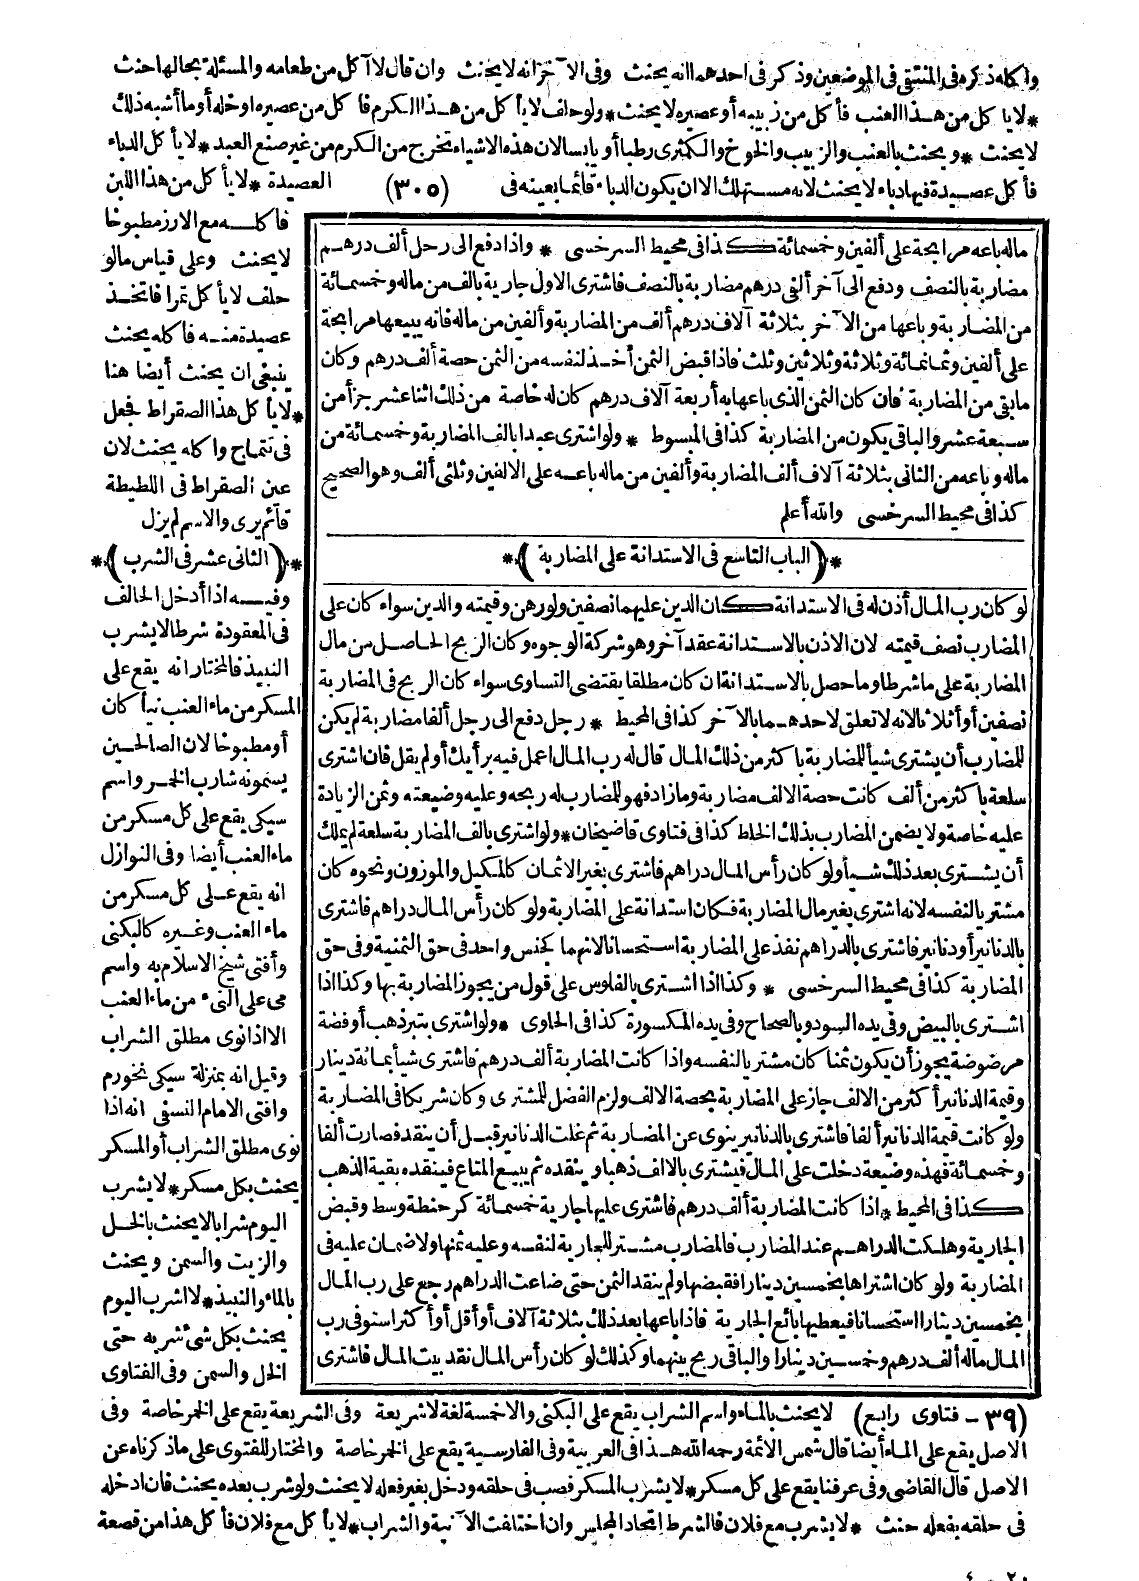 واكله ذكره فى المنتقى فى الموضعين وذكر فى احدهما انه يحنث وفى الآخر انه لا يحنث وان قال لا آكل من طعامه والمسئلة بحالها حنث
* لا يأكل من هذا العنب فأكل من زبيبه أو عصيره لا يحنث * ولو حلف لا يأكل من هذا الكرم فأكل من عصيره او خله أو ما أشبه ذلك
لا يحنث * ويحنث بالعنب والزبيب والخوخ والكمثرى رطبا أو يابسا لان هذه الاشياء تخرج من الكرم من غير صنع العبد * لا يأكل الدباء
فأكل عصيدة فيها دباء لا يحنث لانه مستهلك الا ان يكون الدباء قائما بعينه فى (٣٠٥) العصيدة * لا يأكل من هذا اللبن
فأكله مع الارز مطبوخا
لا يحنث وعلى قياس ما لو
حلف لا يأكل تمرا فاتخذ
عصيدة منه فأكله يحنث
ينبغى ان يحنث أيضا هنا
* لا يأكل هذا الصقراط فجعل
فى تتماج واكله يحنث لان
عين الصقراط فى اللطيطة
قائم يرى والاسم لم يزل
*(الثانى عشر فى الشرب)*
وفيه اذا أدخل الحالف
فى المعقودة شرطا لا يشرب
النبيذ فالمختار انه يقع على
المسكر من ماء العنب نيأ كان
أو مطبوخا لان الصالحين
يسمونه شارب الخمر واسم
سيكى يقع على كل مسكر من
ماء العنب أيضا وفى النوازل
انه يقع على كل مسكر من
ماء العنب وغيره كالبكنى
وأفتى شيخ الاسلام به واسم
مى على النىء من ماء العنب
الا اذا نوى مطلق الشراب
وقيل انه بمنزلة سيكى نخورم
وافتى الامام النسفى انه اذا
نوى مطلق الشراب أو المسكر
يحنث بكل مسكر * لا يشرب
اليوم شرابا لا يحنث بالخل
والزيت والسمن ويحنث
بالماء والنبيذ * لا اشرب اليوم
يحنث بكل شئ شربه حتى
الخل والسمن وفى الفتاوى
ماله باعه مرابحة على ألفين وخمسمائة كذا فى محيط السرخسى * واذا دفع الى رجل ألف درهم
مضاربة بالنصف ودفع الى آخر ألفى درهم مضاربة بالنصف فاشترى الاول جارية بالف من ماله وخمسمائة
من المضاربة وباعها من الآخر بثلاثة آلاف درهم ألف من المضاربة وألفين من ماله فانه يبيعها مرابحة
على ألفين وثمانمائة وثلاثة وثلاثين وثلث فاذا قبض الثمن أخذ لنفسه من الثمن حصة ألف درهم وكان
ما بقى من المضاربة فان كان الثمن الذى باعها به أربعة آلاف درهم كان له خاصة من ذلك اثنا عشر جزأ من
سبعة عشر والباقى يكون من المضاربة كذا فى المبسوط * ولو اشترى عبدا بالف المضاربة وخمسمائة من
ماله وباعه من الثانى بثلاثة آلاف ألف المضاربة وألفين من ماله باعه على الالفين وثلثى ألف وهو الصحيح
كذا فى محيط السرخسى والله أعلم
*(الباب التاسع فى الاستدانة على المضاربة)*
لو كان رب المال أذن له فى الاستدانة كان الدين عليهما نصفين ولو رهن وقيمته والدين سواء كان على
المضارب نصف قيمته لان الاذن بالاستدانة عقد آخر وهو شركة الوجوه وكان الربح الحاصل من مال
المضاربة على ما شرطا وما حصل بالاستدانة ان كان مطلقا يقتضى التساوى سواء كان الربح فى المضاربة
نصفين أو أثلاثا لانه لا تعلق لاحدهما بالآخر كذا فى المحيط * رجل دفع الى رجل ألفا مضاربة لم يكن
للمضارب أن يشترى شيأ للمضاربة باكثر من ذلك المال قال له رب المال اعمل فيه برأيك أو لم يقل فان اشترى
سلعة باكثر من ألف كانت حصة الالف مضاربة وما زاد فهو للمضارب له ربحه وعليه وضيعته وثمن الزيادة
عليه خاصة ولا يضمن المضارب بذلك الخلط كذا فى فتاوى قاضيخان * ولو اشترى بالف المضاربة سلعة لم يملك
أن يشترى بعد ذلك شيأ ولو كان رأس المال دراهم فاشترى بغير الاثمان كالمكيل والموزون ونحوه كان
مشتريا لنفسه لانه اشترى بغير مال المضاربة فكان استدانة على المضاربة ولو كان رأس المال دراهم فاشترى
بالدنانير أو دنانير فاشترى بالدراهم نفذ على المضاربة استحسانا لانهما كجنس واحد فى حق الثمنية وفى حق
المضاربة كذا فى محيط السرخسى * وكذا اذا اشترى بالفلوس على قول من يجوز المضاربة بها وكذا اذا
اشترى بالبيض وفى يده السود وبالصحاح وفى يده المكسورة كذا فى الحاوى * ولو اشترى بتبر ذهب أو فضة
مرضوضة يجوز أن يكون ثمنا كان مشتريا لنفسه واذا كانت المضاربة ألف درهم فاشترى شيأ بمائة دينار
وقيمة الدنانير أكثر من الالف جاز على المضاربة بحصة الالف ولزم الفضل للمشترى وكان شريكا فى المضاربة
ولو كانت قيمة الدنانير ألفا فاشترى بالدنانير ينوى عن المضاربة ثم غلت الدنانير قبل أن ينقد فصارت ألفا
وخمسمائة فهذه وضيعة دخلت على المال فيشترى بالالف ذهبا وينقده ثم يبيع المتاع فينقده بقية الذهب
كذا فى المحيط * اذا كانت المضاربة ألف درهم فاشترى عليها جارية خمسمائة كر حنطة وسط وقبض
الجارية وهلكت الدراهم عند المضارب فالمضارب مشتر للجارية لنفسه وعليه ثمنها ولا ضمان عليه فى
المضاربة ولو كان اشتراها بخمسين دينارا فقبضها ولم ينقد الثمن حتى ضاعت الدراهم رجع على رب المال
بخمسين دينارا استحسانا فيعطيها بائع الجارية فاذا باعها بعد ذلك بثلاثة آلاف أو أقل أو أكثر استوفى رب
المال ماله ألف درهم وخمسين دينارا والباقى ربح بينهما وكذلك لو كان رأس المال نقد بيت المال فاشترى
(٣٩ - فتاوى رابع) لا يحنث بالماء واسم الشراب يقع على البكنى والاخمسة لغة لا شريعة وفى الشريعة يقع على الخمر خاصة وفى
الاصل يقع على الماء أيضا قال شمس الائمة رحمه الله هذا فى العربية وفى الفارسية يقع على الخمر خاصة والمختار للفتوى على ما ذكرناه عن
الاصل قال القاضى وفى عرفنا يقع على كل مسكر * لا يشرب المسكر فصب فى حلقه ودخل بغير فعله لا يحنث ولو شرب بعده يحنث فان ادخله
فى حلقه بفعله حنث * لا يشرب مع فلان فالشرط اتحاد المجلس وان اختلفت الآنية والشراب * لا يأكل مع فلان فأكل هذا من قصعة